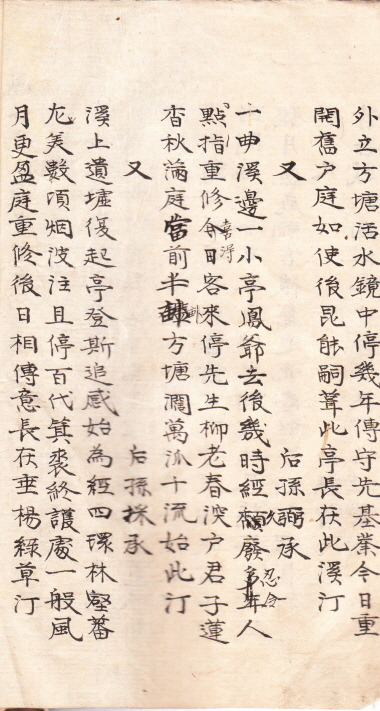 外立方塘活水鏡中停幾年傳守先基業今日重
開舊戶庭如使後昆能嗣葺此亭長在此溪汀
又 后孫弼承
一曲溪邊一小亭鳳爺去後幾時經頹廢年人
久忍令
點指重修今日客來停先生柳老春深戶君子蓮
喜得
香秋滿庭當前半方塘濶萬派千流始此汀
又 后孫採承
溪上遺墟復起亭登斯追感始為經四環林壑蕃
尤美數頃烟波注且停百代箕裘終護處一般風
月更盈庭重修後日相傳意長在垂楊綠草汀